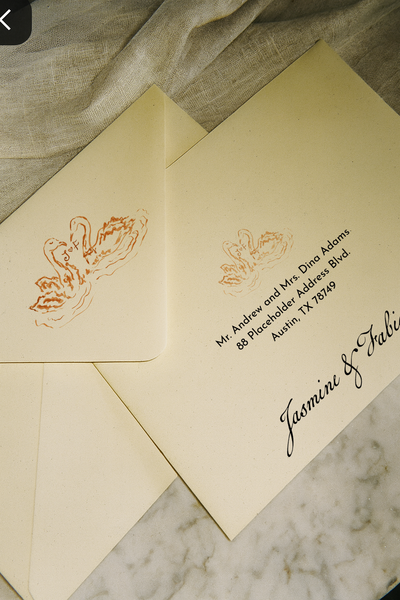 Mr. Andrew and Mrs. Dina Adams
88 Placeholder Address Blvd.
Austin, TX 78749
Jasmine &